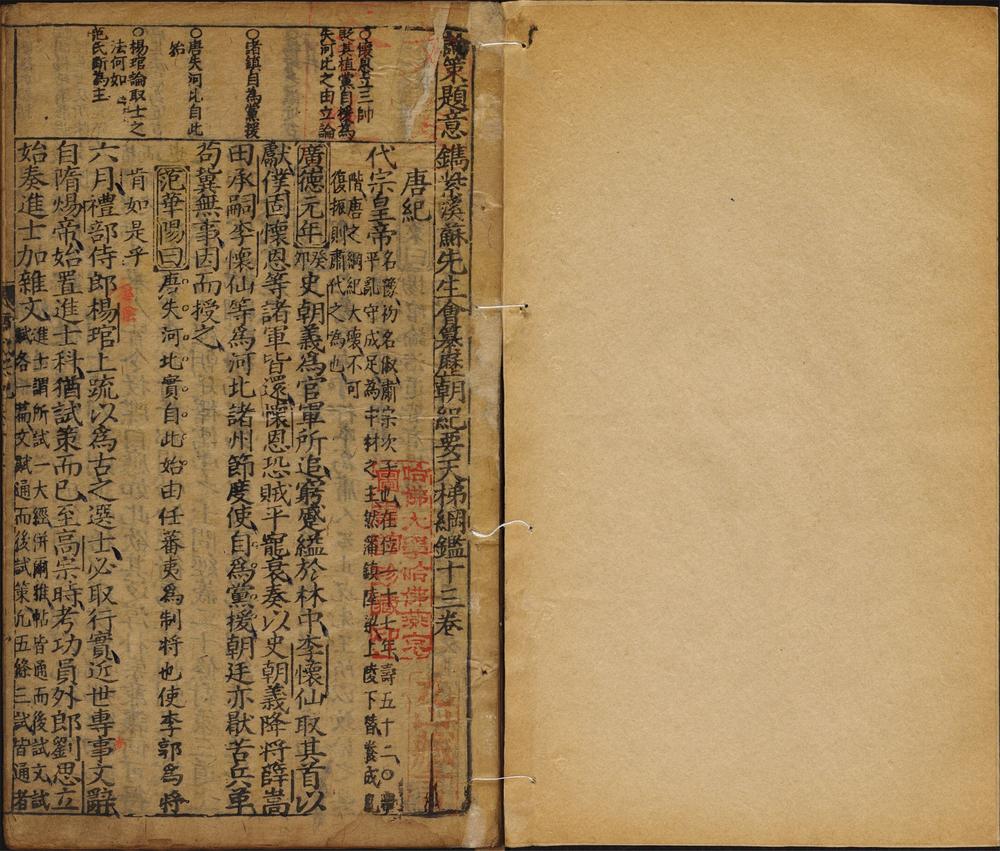 論策題意
鐫紫溪蘇先生會纂歷朝紀要天梯綱鑑十三卷
唐紀
代宗皇帝
名豫初名俶肅宗次子也在位一十七年壽五十二〇
平亂守成足為中材之主然藩鎮陸梁上陵下替養成亂
階唐之綱紀大壞不可
復振則肅代之為也
廣德元年
癸卯
史朝義為官軍所追窮蹙縊於林中李懷仙取其首以
獻僕固懷恩等諸軍皆還懷恩恐賊平寵衰奏以史朝義降將薛嵩
田承嗣李懷仙等為河北諸州節度使自為黨援朝廷亦厭苦兵革
苟冀無事因而授之
范華陽曰
唐失河北實自此始由任蕃夷為制將也使李郭為將
肯如是乎
六月禮部侍郎楊琯上疏以為古之選士必取行實近世專事文辭
自隋煬帝始置進士科猶試策而已至高宗時考功員外郎劉思立
始奏進士加雜文
進士謂所試一大經併爾雅帖皆通而後試文試
賦各一篇文賦通而後試策凡五條三試皆通者
〇懷恩立三帥
貯其植黨自援為
失河北之由立論
〇諸鎮自為黨援
〇唐失河北自此
始
〇楊琯論取士之
法何如
范氏斷為主
哈佛大學哈佛燕京
圖書館珍藏印